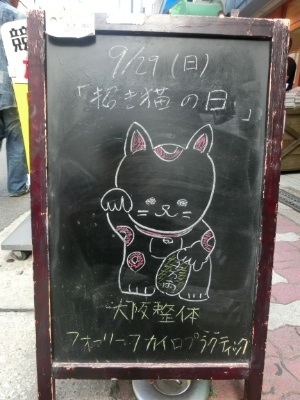 9/29(日)
「招き猫の日」
大阪整体
フォーリーフカイロプラクティック